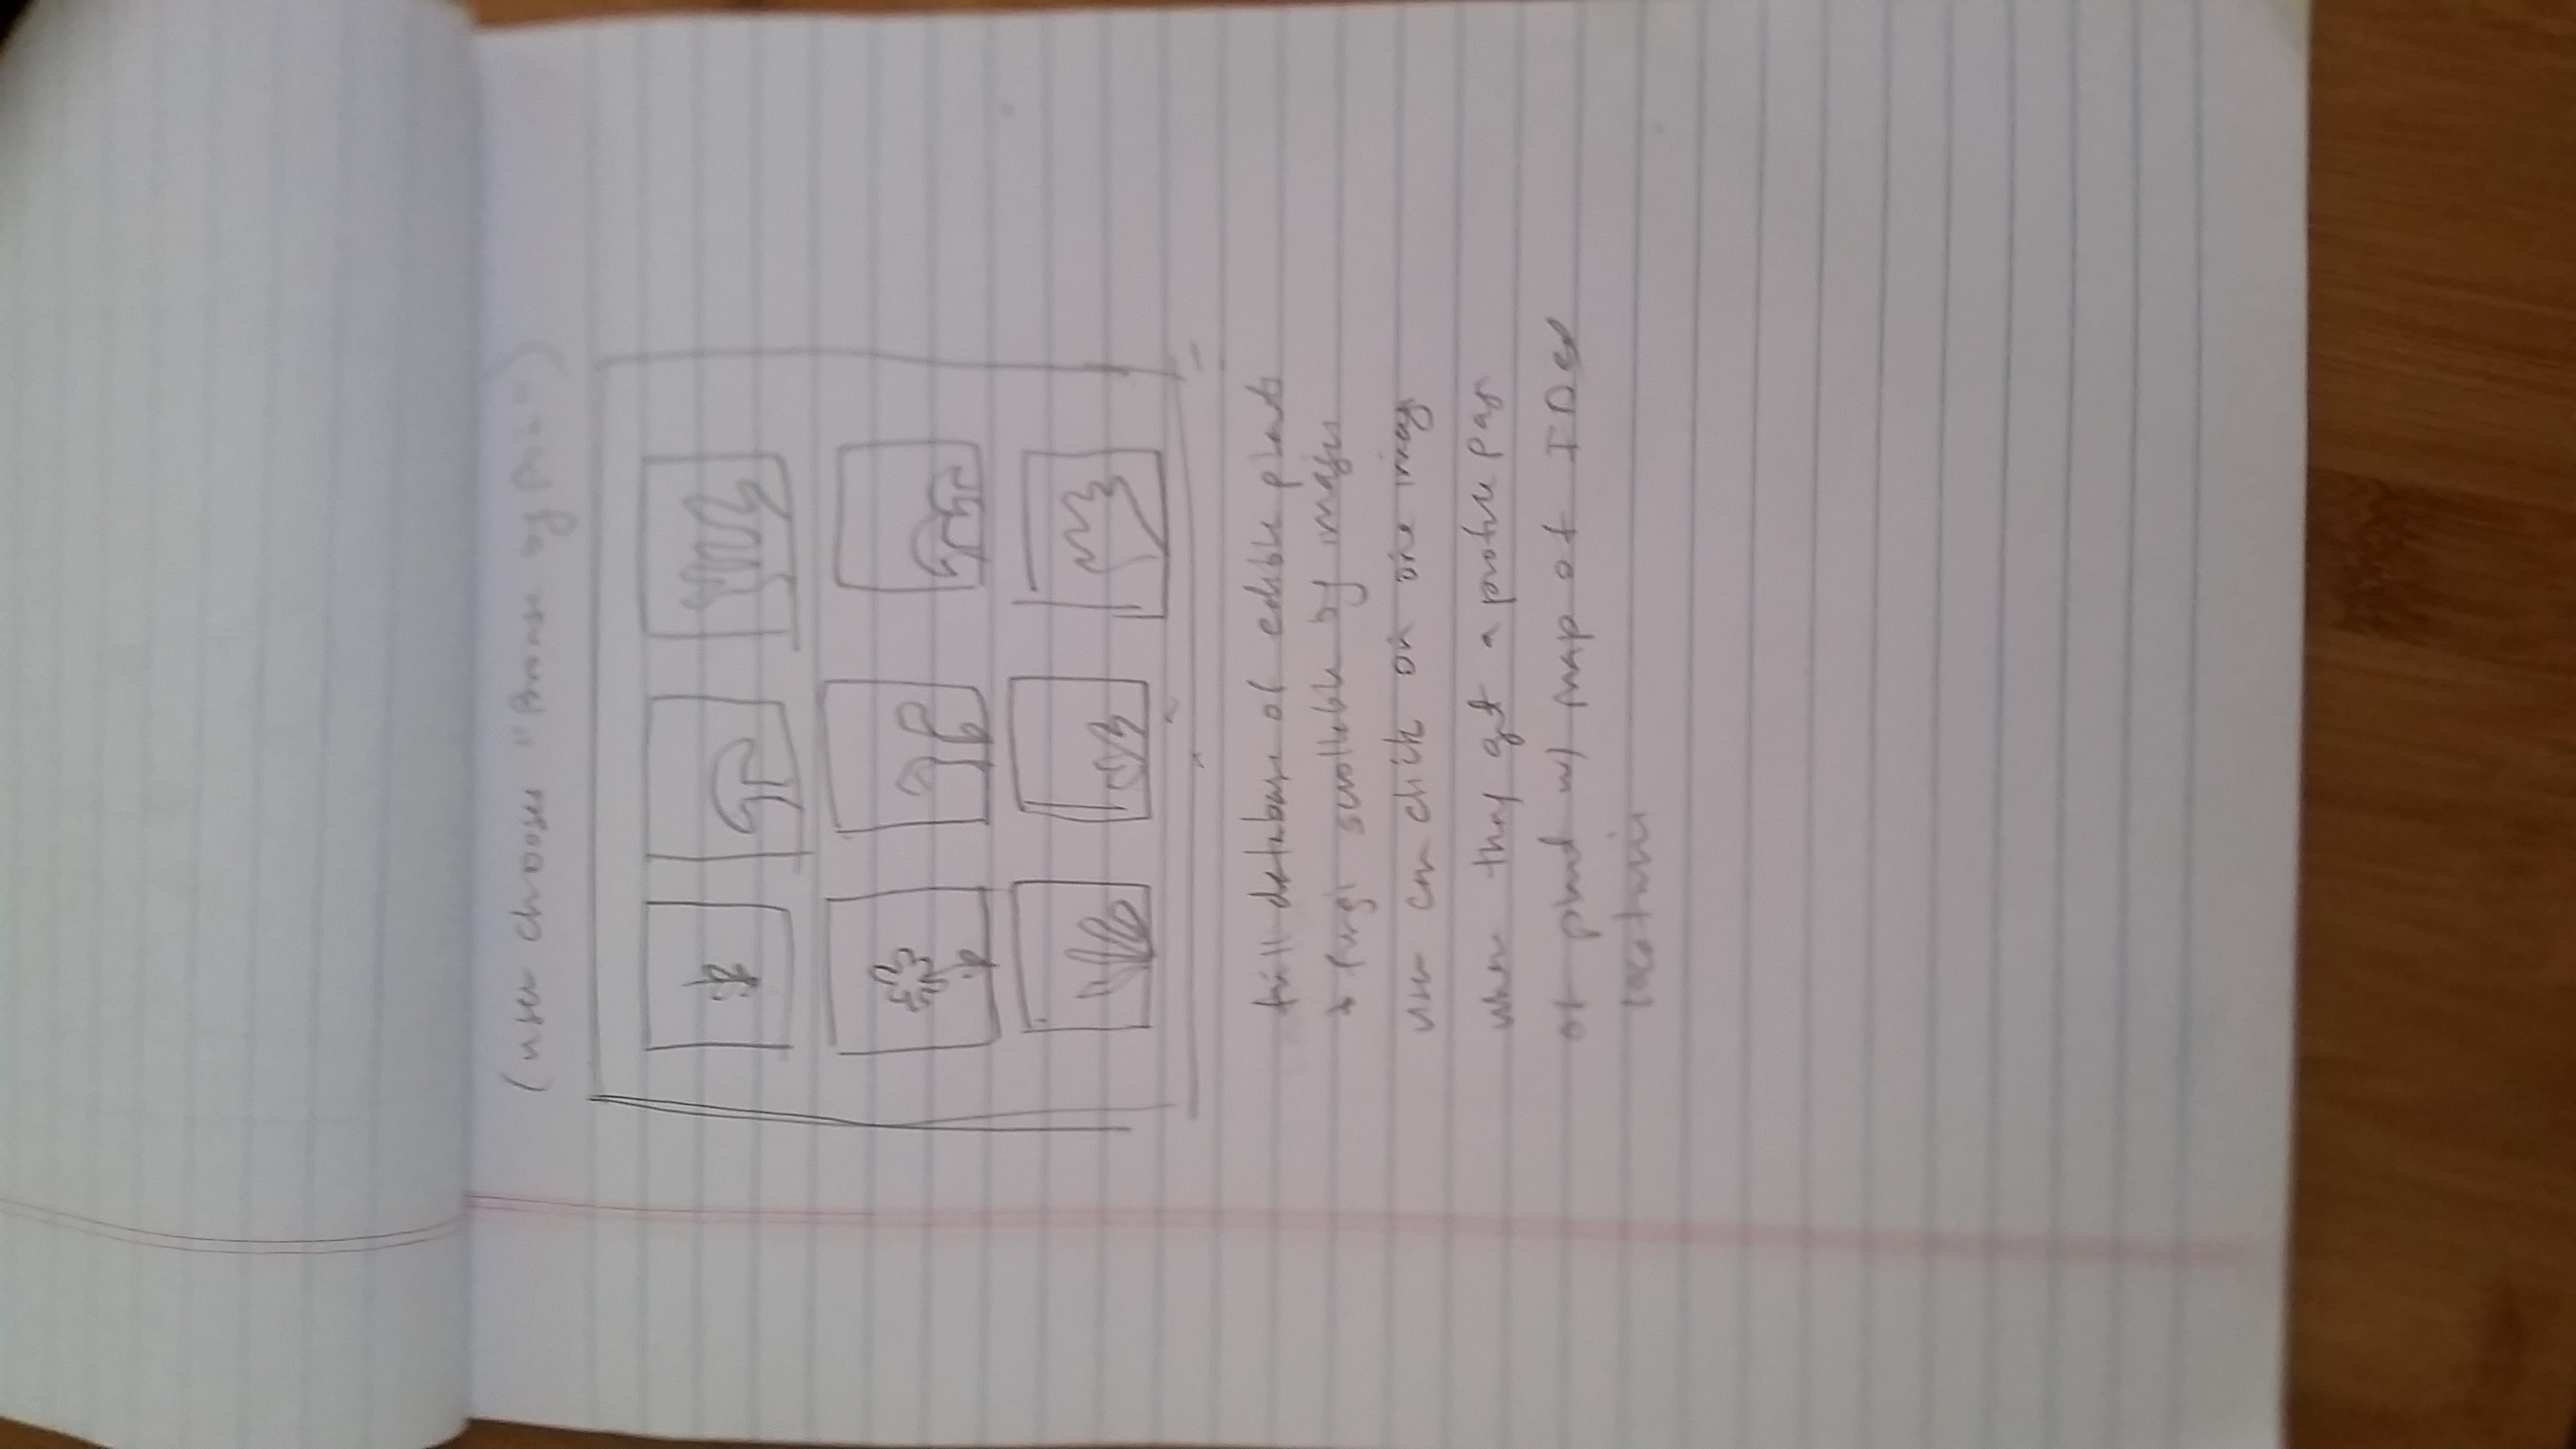 (user chooses "Browse by Pic")
full database of edible plants
+ fungi scrollable by images
user can click on one image
where they get a profile page
of plant w/ map of IDed
locations